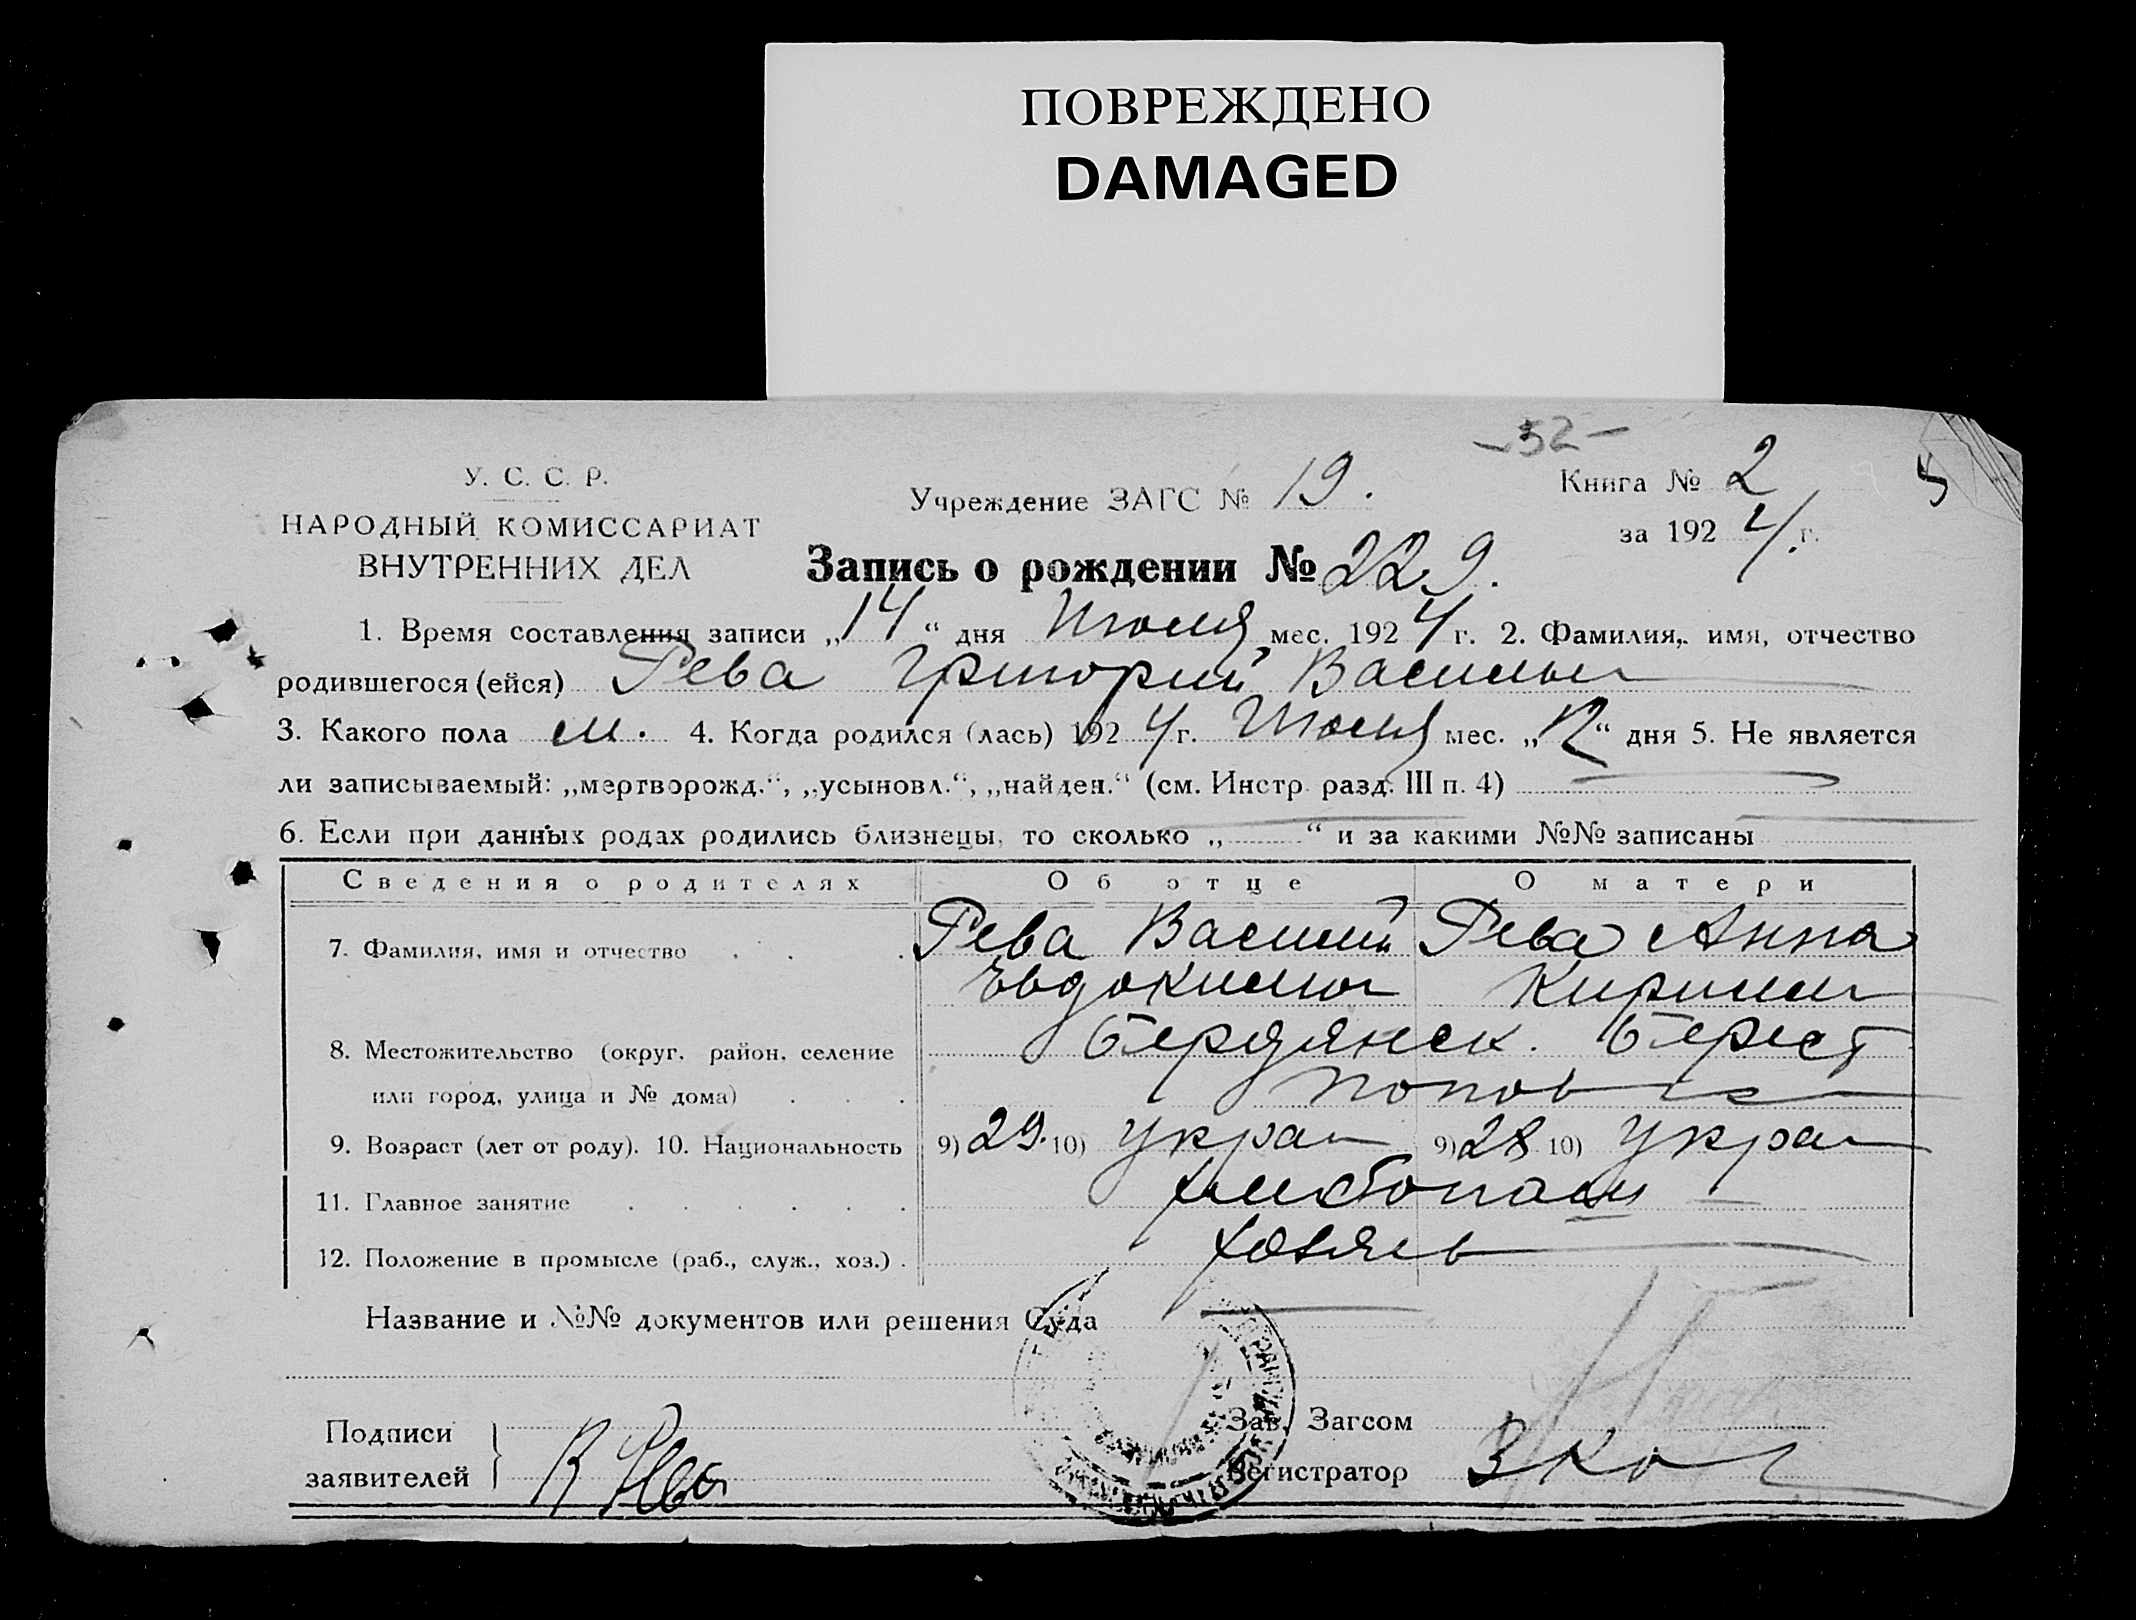 ПОВРЕЖДЕНО
DAMAGED
-52-
У. С. С. Р.
НАРОДНЫЙ КОМИССАРИАТ
ВНУТРЕННИХ ДЕЛ
Учреждение ЗАГС № 19.
Книга № 2
5
за 1924 г.
Запись о рождении № 229.
1. Время составления записи „14“ дня Июля мес. 1924 г. 2. Фамилия, имя, отчество
родившегося (ейся) Рева Григорий Васильев
3. Какого пола м. 4. Когда родился (лась) 1924 г. Июля мес. „12“ дня 5. Не является
ли записываемый: „мертворожд.“, „усыновл.“, „найден.“ (см. Инстр. разд. III п. 4)
6. Если при данных родах родились близнецы, то сколько „ “ и за какими №№ записаны
Сведения о родителях Об отце О матери
7. Фамилия, имя и отчество . . . Рева Василий Рева Анна
Евдокимов Кирилл
8. Местожительство (округ, район, селение Бердянск. Берест
или город, улица и № дома) . . . Поповка
9. Возраст (лет от роду). 10. Национальность 9) 29. 10) укра 9) 28 10) укра
11. Главное занятие . . . . . . хлебопаш
12. Положение в промысле (раб., служ., хоз.) . хозяев
Название и №№ документов или решения Суда
Подписи
заявителей
В Рева
Зав. Загсом
Регистратор